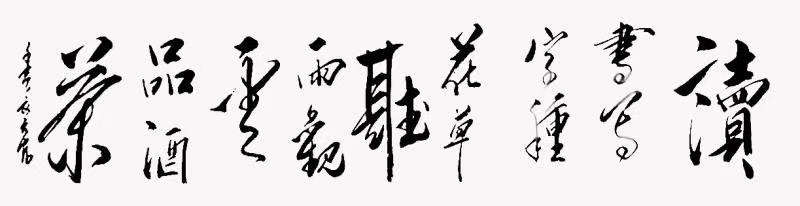 讀
書寫
字種
花草
聽
雨觀
雲
品酒
茶